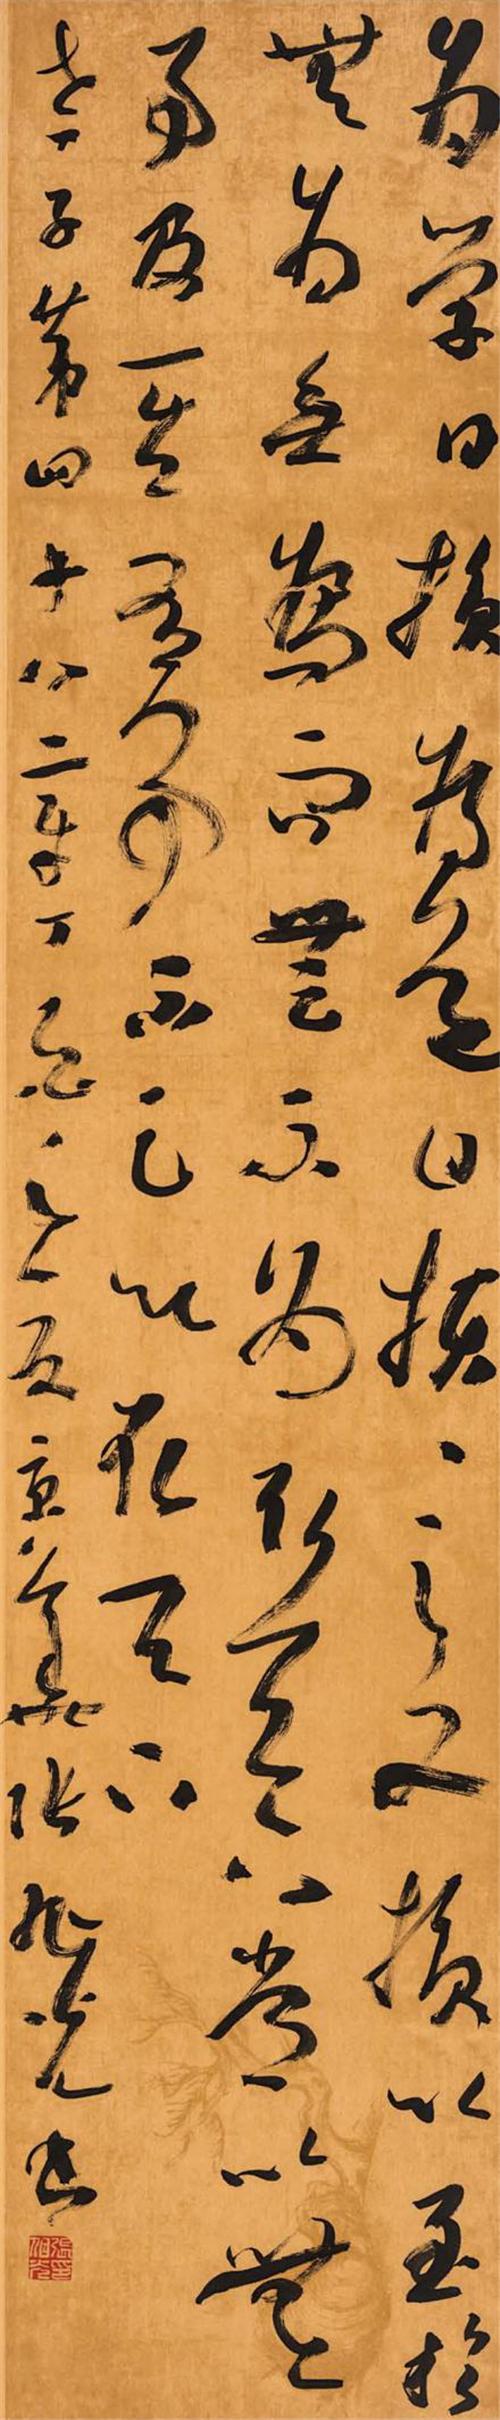 為學日損為道日損〻之又損以至於
無為無為而無不為取天下常以無
事及其有事不足以取天下
老子第四十八章丁酉之夏京華張旭光书